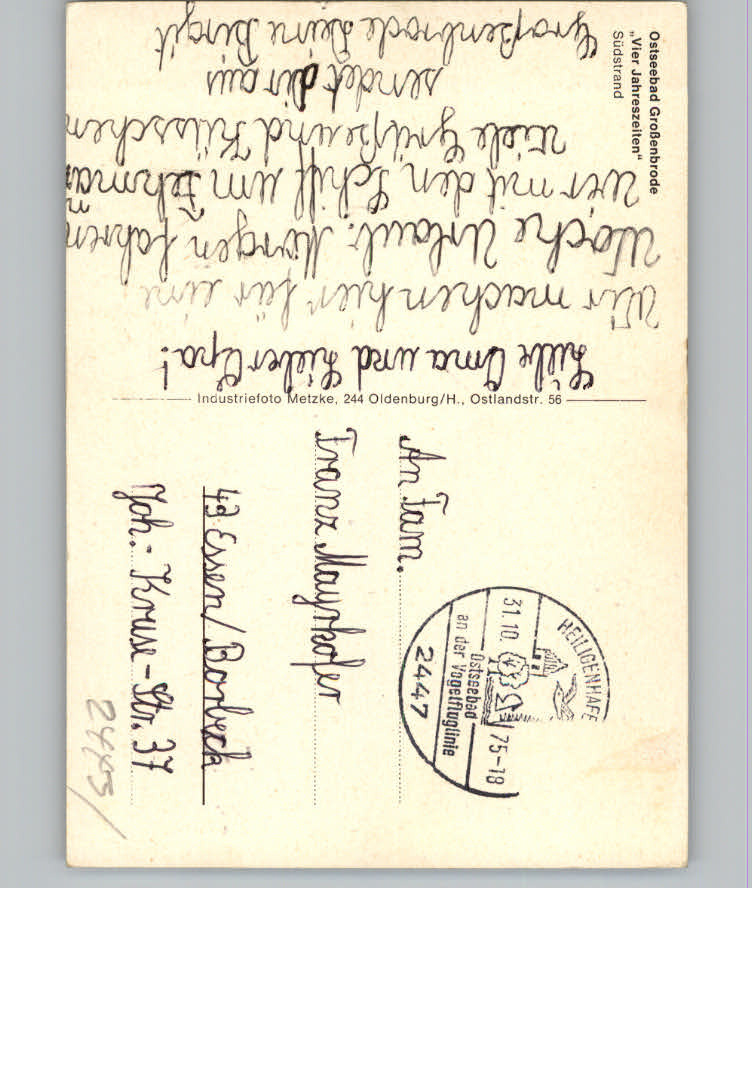 Ostseebad Großenbrode
„Vier Jahreszeiten"
Südstrand
Liebe Oma und Lieber Opa!
Wir machen hier für eine
Woche Urlaub. Morgen fahren
wir mit den Schiff um Fehmarn
Viele Grüße und Küsschen
sendet dir aus
Großenbrode Deine Birgit
Industriefoto Metzke, 244 Oldenburg/H., Ostlandstr. 56
HEILIGENHAFE
31.10.75-18
Ostseebad
an der Vogelfluglinie
2447
An Fam.
Franz Mayrhofer
43 Essen/Borbeck
Joh.-Kruse-Str. 37